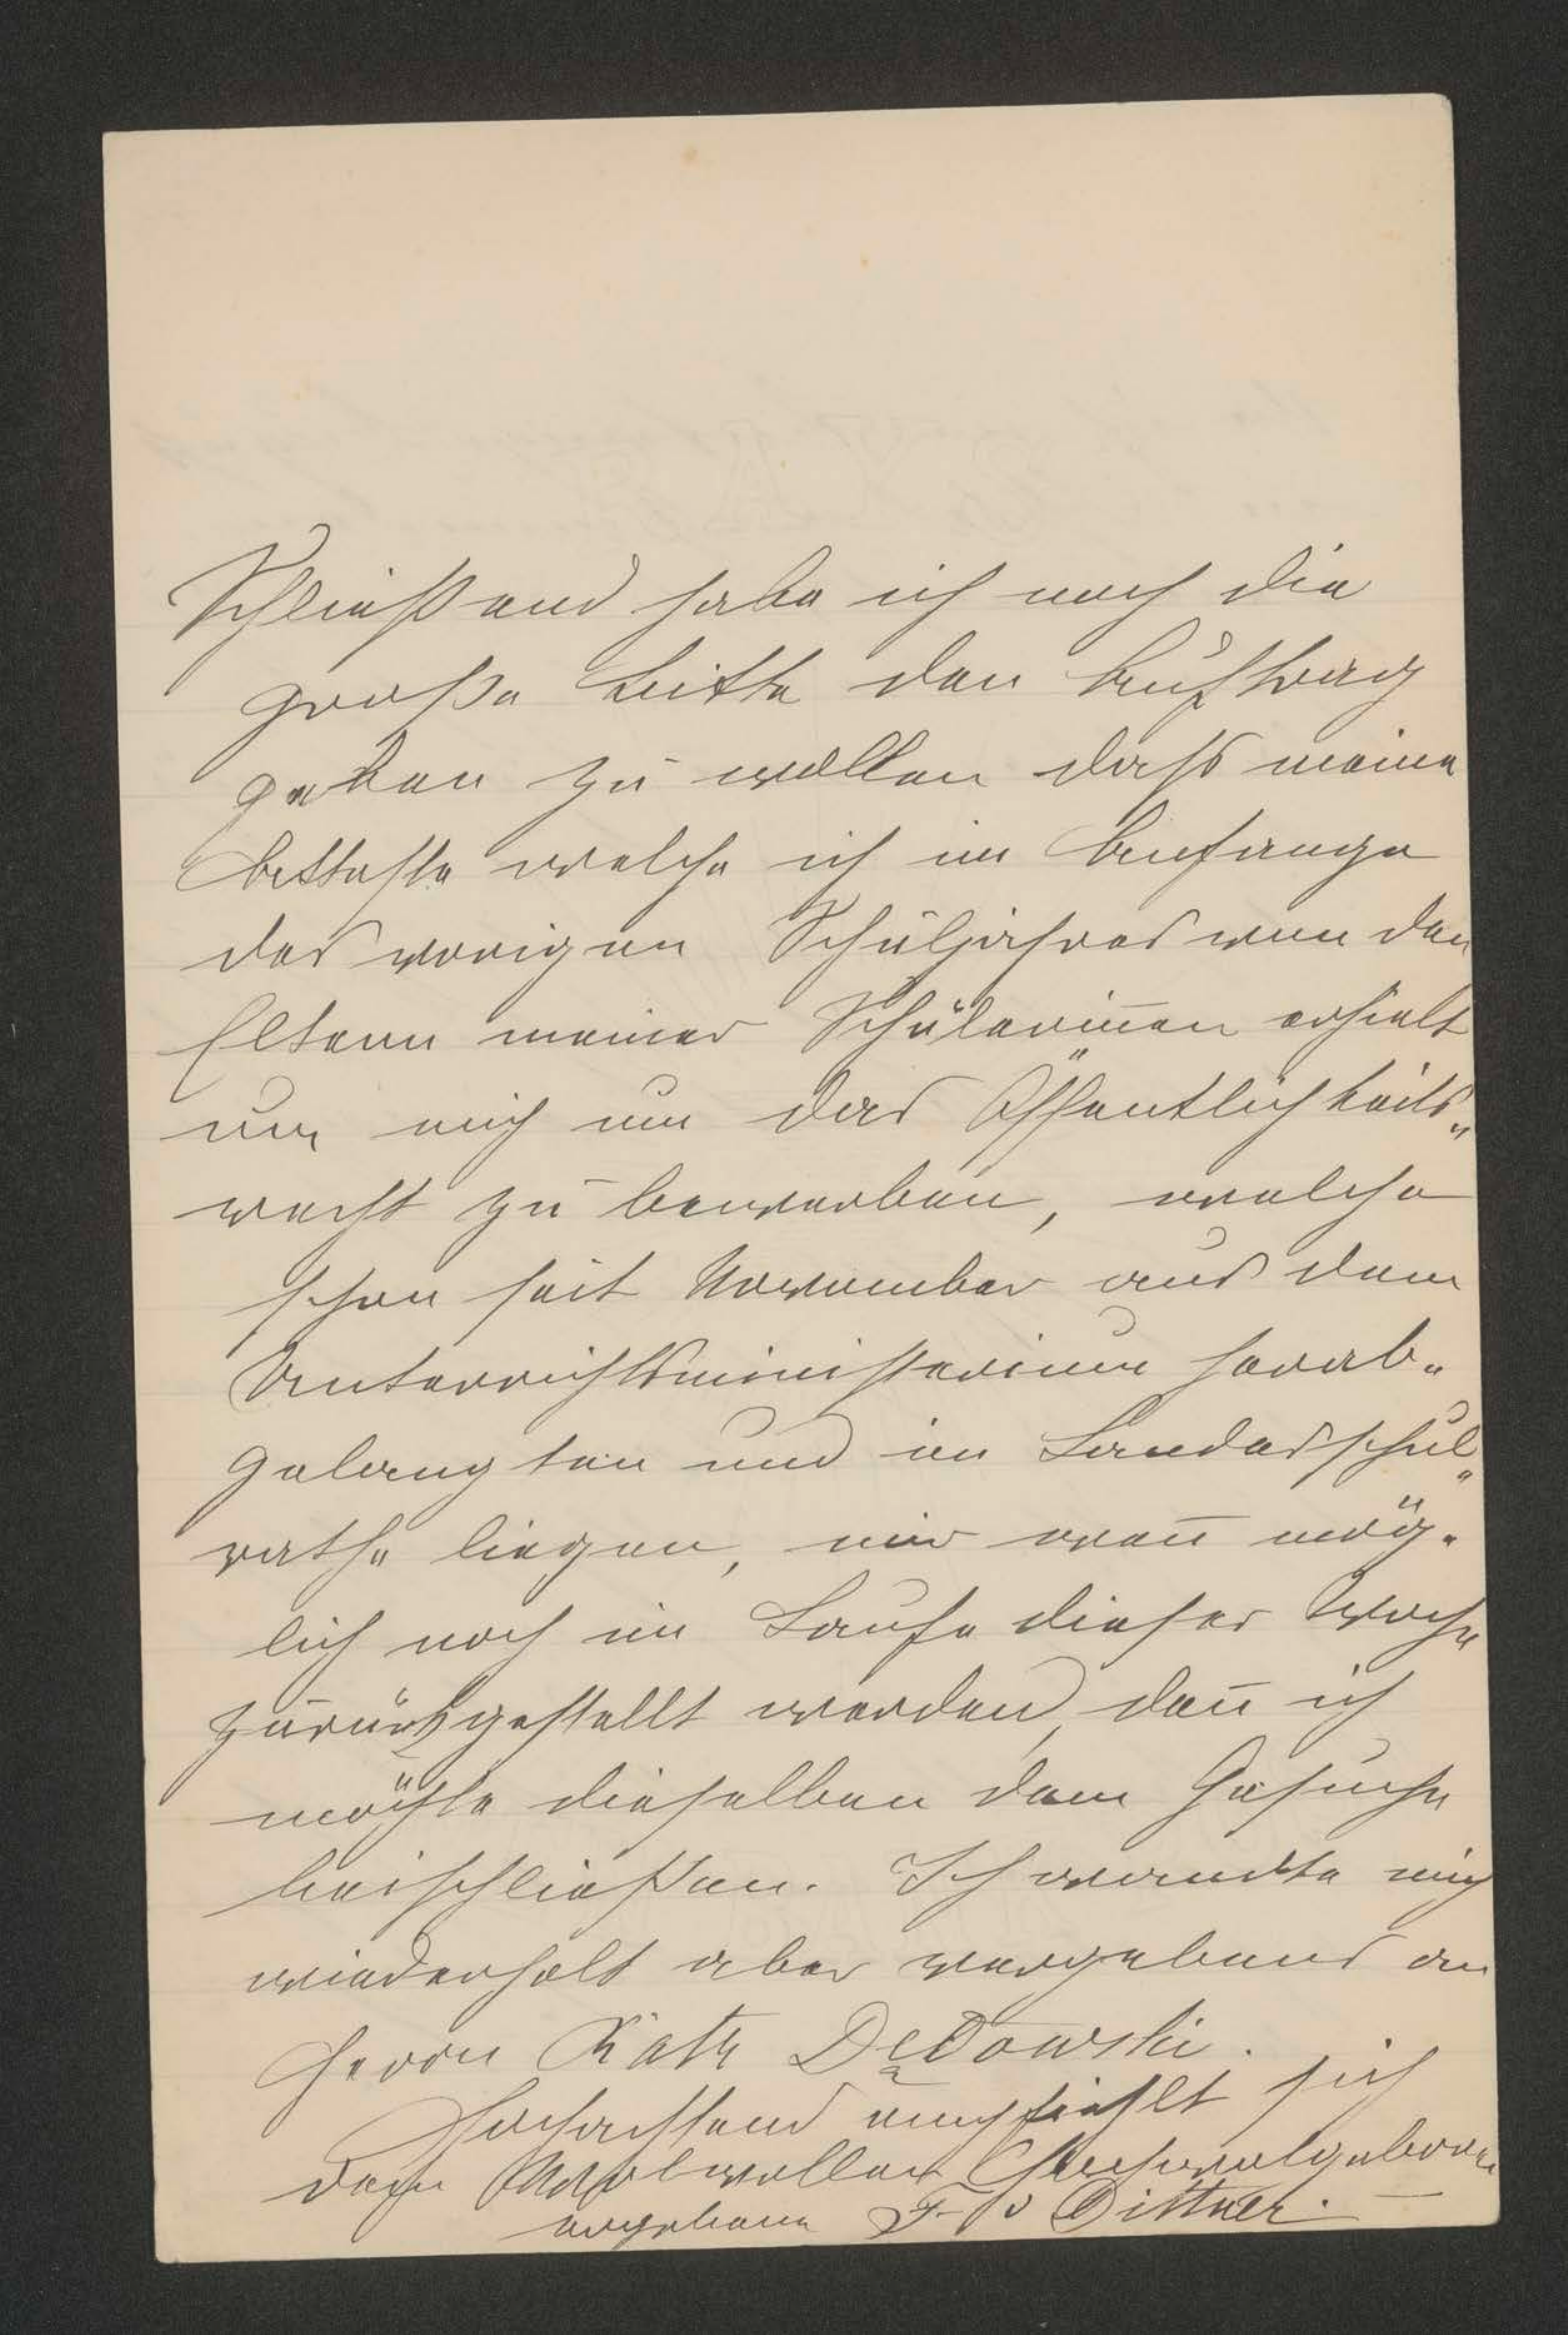 Schließend habe ich noch die
große Bitte den Auftrag
geben zu wollen dass meine
Atteste welche ich im Anfange
des vorigen Schuljahres von den
Eltern meiner Schülerinen erhielt
um mich um das Öffentlichkeits„
recht zu bewerben, welche
schon seit November aus dem
Unterrichtsministerium herab„
gelangten und im Landesschul„
rathe liegen, mir wen̄ mög„
lich noch im Laufe dieser Woche
zurückgestellt werden, den̄ ich
möchte dieselben dem Gesuche
beischließen. Ich wandte mich
wiederholt aber vergebens an
Herrn Rath Dędowski.
Hochachtend empfiehlt sich
dem Wolwollen Hochwolgeboren
ergebene F v Dittner.